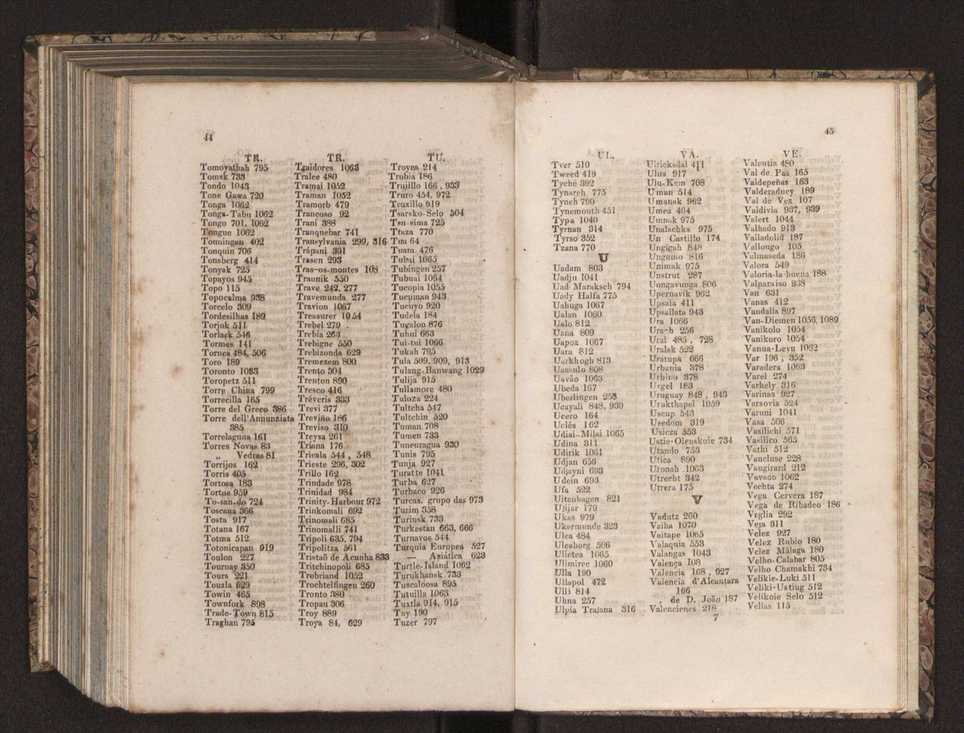 44
TR.
Tomoyathah 795
Tomsk 733
Tondo 1043
Tone Gawa 720
Tonga 1062
Tonga-Tabu 1062
Tongo 701, 1062
Tongue 1002
Tonningen 402
Tonquin 706
Tonsberg 414
Tonyak 725
Topayos 945
Topo 115
Topocalma 938
Torcelo 309
Tordesilhas 189
Torjok 511
Torlask 546
Tormes 141
Tornea 484, 506
Toro 189
Toronto 1083
Toropetz 511
Torre China 799
Torrecilla 165
Torre del Greco 386
Torre dell'Annunziata
385
Torrelaguna 161
Torres Novas 83
„ Vedras 81
Torrijos 162
Torris 405
Tortosa 183
Tortue 959
To-san-do 724
Toscana 366
Tosta 917
Totana 167
Totma 512
Totonicapan 919
Toulon 227
Tournay 350
Tours 221
Touzla 629
Towin 465
Townfork 898
Trade-Town 815
Traghan 795
TR.
Tgaidores 1063
Tralee 480
Tramai 1052
Traman 1052
Tramorb 479
Trancoso 92
Trani 388
Tranquebar 741
Transylvania 299, 316
Trapani 391
Trasen 293
Tras-os-montes 108
Traunik 550
Trave 242, 277
Travemunda 277
Travion 1067
Treasurer 1054
Trebel 279
Trebia 263
Trebigne 550
Trebizonda 629
Tremezem 800
Trento 304
Trenton 890
Tresco 416
Tréveris 333
Trevi 377
Treviño 186
Treviso 310
Treysa 261
Triana 176
Tricala 544, 548
Trieste 296, 302
Trillo 162
Trindade 978
Trinidad 984
Trinity-Harbour 972
Trinkomali 692
Trinomali 685
Trinomalli 741
Tripoli 635, 794
Tripolitza 561
Tristaõ de Acunha 833
Tritchinopoli 685
Trobriand 1052
Trochtelfingen 260
Tronto 380
Tropau 306
Troy 889
Troya 84, 629
TU.
Troyes 214
Trubia 186
Trujillo 166, 933
Truro 454, 972
Truxillo 919
Tsarsko-Selo 504
Tsu-sima 725
Ttaza 770
Tua 64
Tuam 476
Tubai 1065
Tubingen 257
Tubuai 1064
Tucopia 1055
Tucuman 943
Tucuyo 920
Tudela 184
Tugalon 876
Tuhui 663
Tui-tui 1066
Tukah 795
Tula 509, 909, 913
Tulang-Banwang 1029
Tulija 915
Tullamore 480
Tuloza 224
Tultcha 547
Tultchin 520
Tuman 708
Tumen 733
Tuneuragua 930
Tunis 795
Tunja 927
Turatte 1041
Turba 627
Turbaco 926
Turcas, grupo das 973
Turim 358
Turinsk 733
Turkestan 663, 666
Turnavoe 544
Turquia Europea 527
— Asiatica 623
Turtle-Island 1062
Turukhansk 733
Tuscaloosa 895
Tutuilla 1063
Tuxtla 914, 915
Tuy 190
Tuzer 797
45
UL.
Tver 510
Tweed 419
Tyche 392
Tynareh 775
Tyneh 790
Tynemouth 451
Typa 1040
Tyrnan 314
Tyrso 352
Tzana 770
U
Uadam 803
Uadju 1041
Uad Maraksch 794
Uady Halfa 775
Uahuga 1067
Ualan 1060
Ualo 812
Uana 809
Uapoa 1067
Uara 812
Uarkhogh 813
Uassulo 808
Uavão 1063
Ubeda 167
Uberlingen 253
Ucayali 848, 930
Ucero 164
Uclés 162
Udiai-Milai 1065
Udina 311
Udirik 1061
Udjan 656
Udjayni 693
Udein 693
Ufa 522
Uitenhagen 821
Ujijar 179
Ukas 979
Ukermunde 323
Ulea 484
Uleaborg 506
Ulietea 1065
Ulimiroe 1060
Ulla 190
Ullapol 472
Ulli 814
Ulma 257
Ulpia Trajana 316
VA.
Ulricksdal 411
Ulus 917
Ulu-Kum 708
Uman 514
Umanak 962
Umea 404
Umnak 975
Unalschka 975
Un Castillo 174
Ungigah 848
Ungumo 816
Unimak 975
Unstrut 287
Uongavunga 806
Upernavik 962
Upsala 411
Upsallata 943
Ura 1066
Urach 256
Ural 485, 728
Uralsk 522
Uratupa 666
Urbania 378
Urbino 378
Urgel 183
Uruguay 848, 943
Urukthapel 1059
Uscup 543
Usedom 319
Usicza 553
Ustie-Olenskoie 734
Utando 753
Utica 890
Utonah 1063
Utrecht 342
Utrera 175
V
Vadutz 260
Vaiha 1070
Vaitape 1065
Valaquia 553
Valangas 1043
Valença 108
Valencia 168, 927
Valencia d'Alcantara
166
„ de D. Joaõ 187
Valencienes 218
7
VE.
Valentia 480
Val de Paz 165
Valdepeñas 163
Valderaduey 189
Val de Vez 107
Valdivia 937, 939
Valert 1044
Valhedo 913
Valladolid 187
Vallongo 105
Valmaseda 186
Valora 549
Valoria-la-buena 188
Valparaiso 938
Van 631
Vanas 412
Vandalia 897
Van-Diemen 1056, 1089
Vanikolo 1054
Vanikoro 1054
Vanua-Levu 1062
Var 196, 352
Varadera 1063
Varel 274
Varhely 316
Varinas 927
Varsovia 524
Varuni 1041
Vasa 506
Vasilichi 571
Vasilico 565
Vathi 512
Vaucluse 228
Vaugirard 212
Vavaõo 1062
Vechta 274
Vega Cervera 187
Vega de Ribadeo 186
Veglia 292
Veja 311
Velez 927
Velez Rubio 180
Velez Málaga 180
Velho-Calabar 805
Velho Chamakhi 734
Velikie-Luki 511
Veliki-Ustiug 512
Velikoie Selo 512
Vellas 115